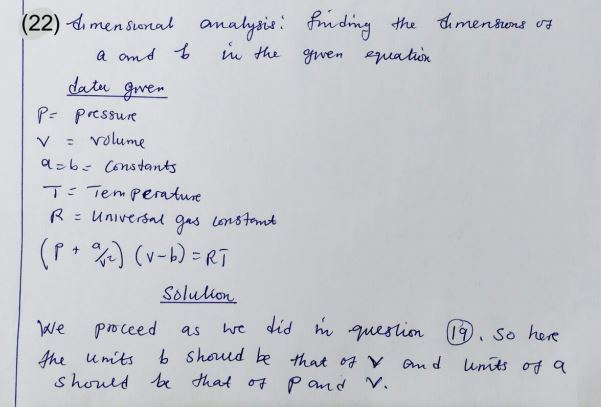 (22) dimensional analysis: finding the dimensions of
a and b in the given equation
data given
P = pressure
V = volume
a=b= constants
T = Temperature
R = Universal gas constant
(P + a/v²) (v-b) = RT
Solution
We proceed as we did in question (19). So here
the units b should be that of V and units of a
should be that of P and V.